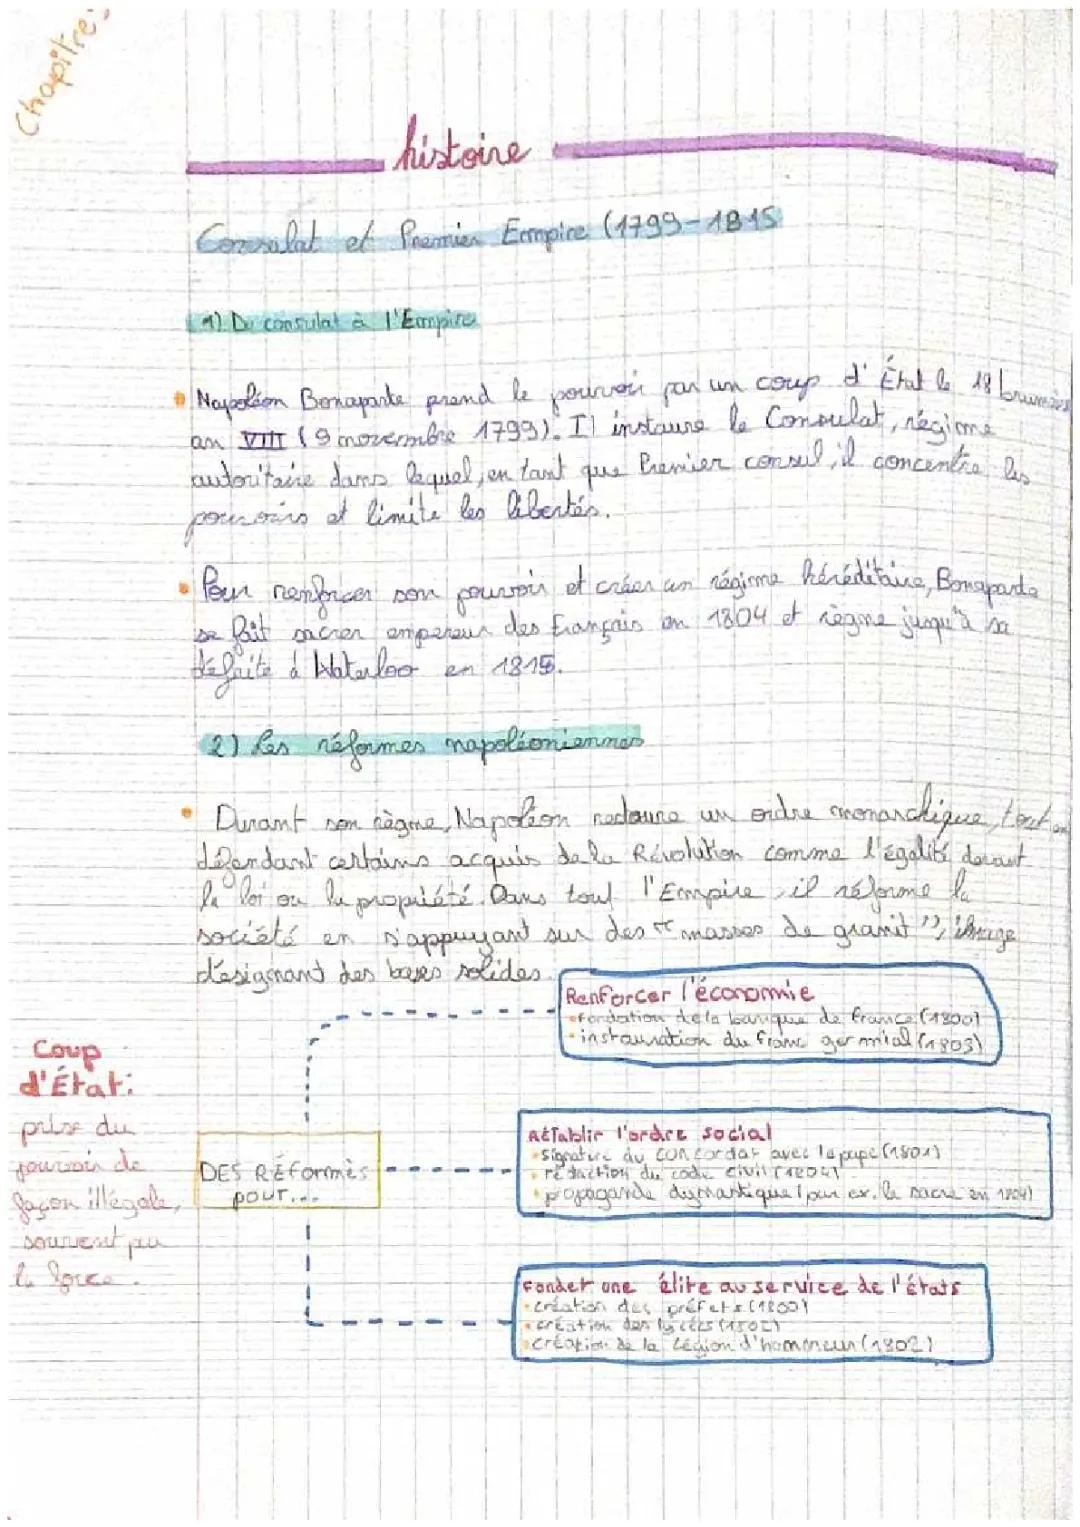 Chapitre:
histoire
Consulat et Premier Empire (1799-1815
1) Du consulat à l'Empire
Napoléon Bonaparte prend le pouvoir par un coup d'État le 18 brumaire
an VIII (9 novembre 1799). Il instaure le Consulat, régime
autoritaire dans lequel, en tant que Premier consul, il concentre les
pouvoirs et limite les libertés.
Pour renforcer son pouvoir et créer un régime héréditaire, Bonaparte
se fait sacrer empereur des Français en 1804 et règne jusqu'à sa
défaite à Waterloo en 1815.
2) Les réformes napoléoniennes
Durant son règne, Napoléon restaure un ordre monarchique, tout en
défendant certains acquis de la Révolution comme l'égalité devant
la loi ou la propriété. Dans tout l'Empire, il réforme la
société en s'appuyant sur des "masses de granit", image
désignant des bases solides.
Renforcer l'économie
fondation de la banque de France (1800)
instauration du franc germinal (1803)
Coup
d'État:
prise du
pouvoir de
façon illégale,
souvent par
la force.
DES RÉformes
pour...
RéTablir l'ordre social
signature du concordat avec le pape (1801)
rédaction du code civil (1804)
propagande dynastique (par ex. le sacre en 1804)
Fonder une élite au service de l'états
création des préfets (1800)
création des lycées (1802)
création de la Légion d'honneur (1802)